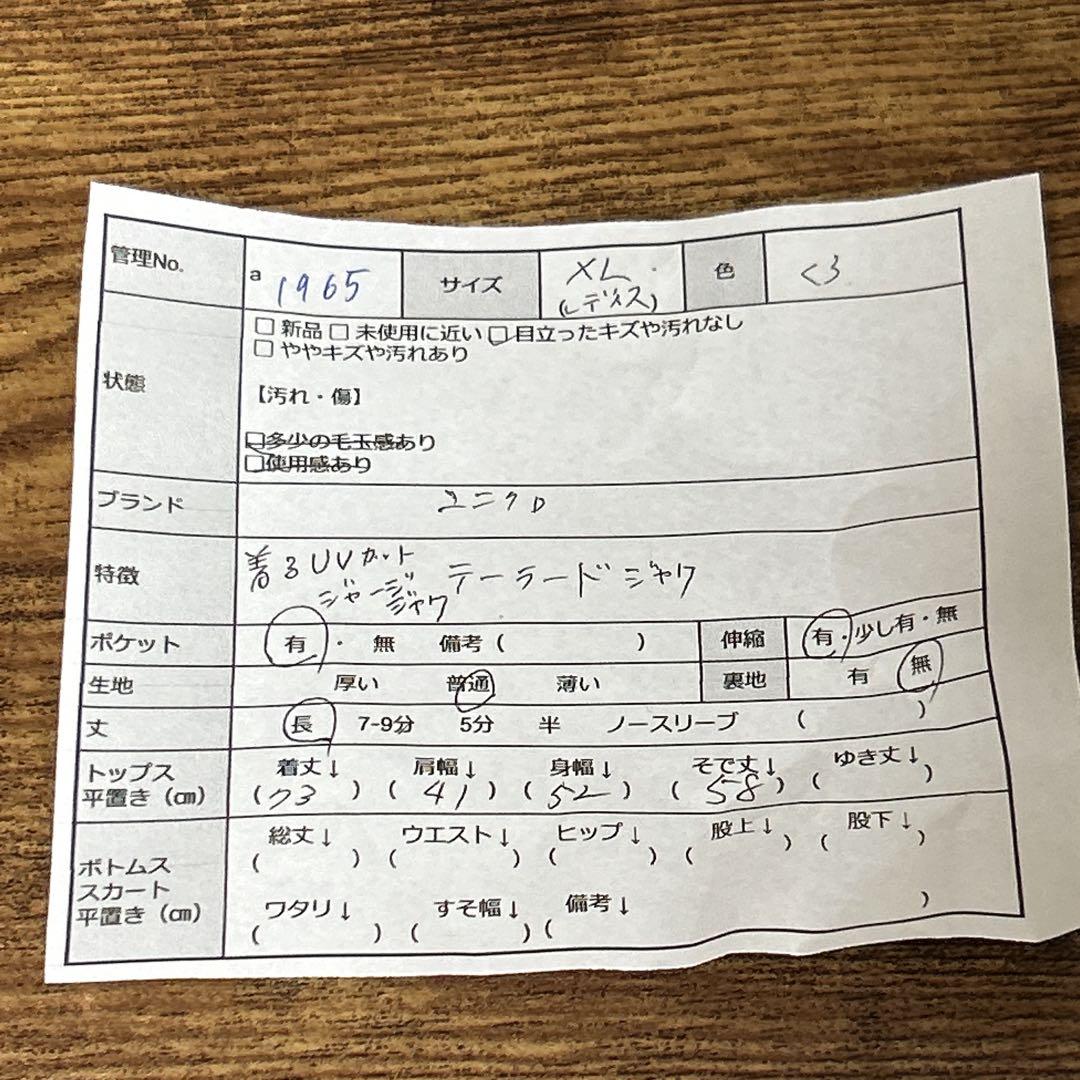 管理No. a 1965 サイズ XL (レディス) 色 くろ
状態
□ 新品 □ 未使用に近い □ 目立ったキズや汚れなし
□ ややキズや汚れあり
【汚れ・傷】
□多少の毛玉感あり
□使用感あり
ブランド ユニクロ
特徴
着るUVカット
ジャージ テーラードジャケ
ジャケ
ポケット 有 ・ 無 備考 ( ) 伸縮 有・少し有・無
生地 厚い 普通 薄い 裏地 有 無
丈 長 7-9分 5分 半 ノースリーブ ( )
トップス 平置き (㎝)
着丈↓ 肩幅↓ 身幅↓ そで丈↓ ゆき丈↓
(73) (41) (52) (58) ( )
ボトムス スカート 平置き (㎝)
総丈↓ ウエスト↓ ヒップ↓ 股上↓ 股下↓
( ) ( ) ( ) ( ) ( )
ワタリ↓ すそ幅↓ 備考↓
( ) ( ) ( )